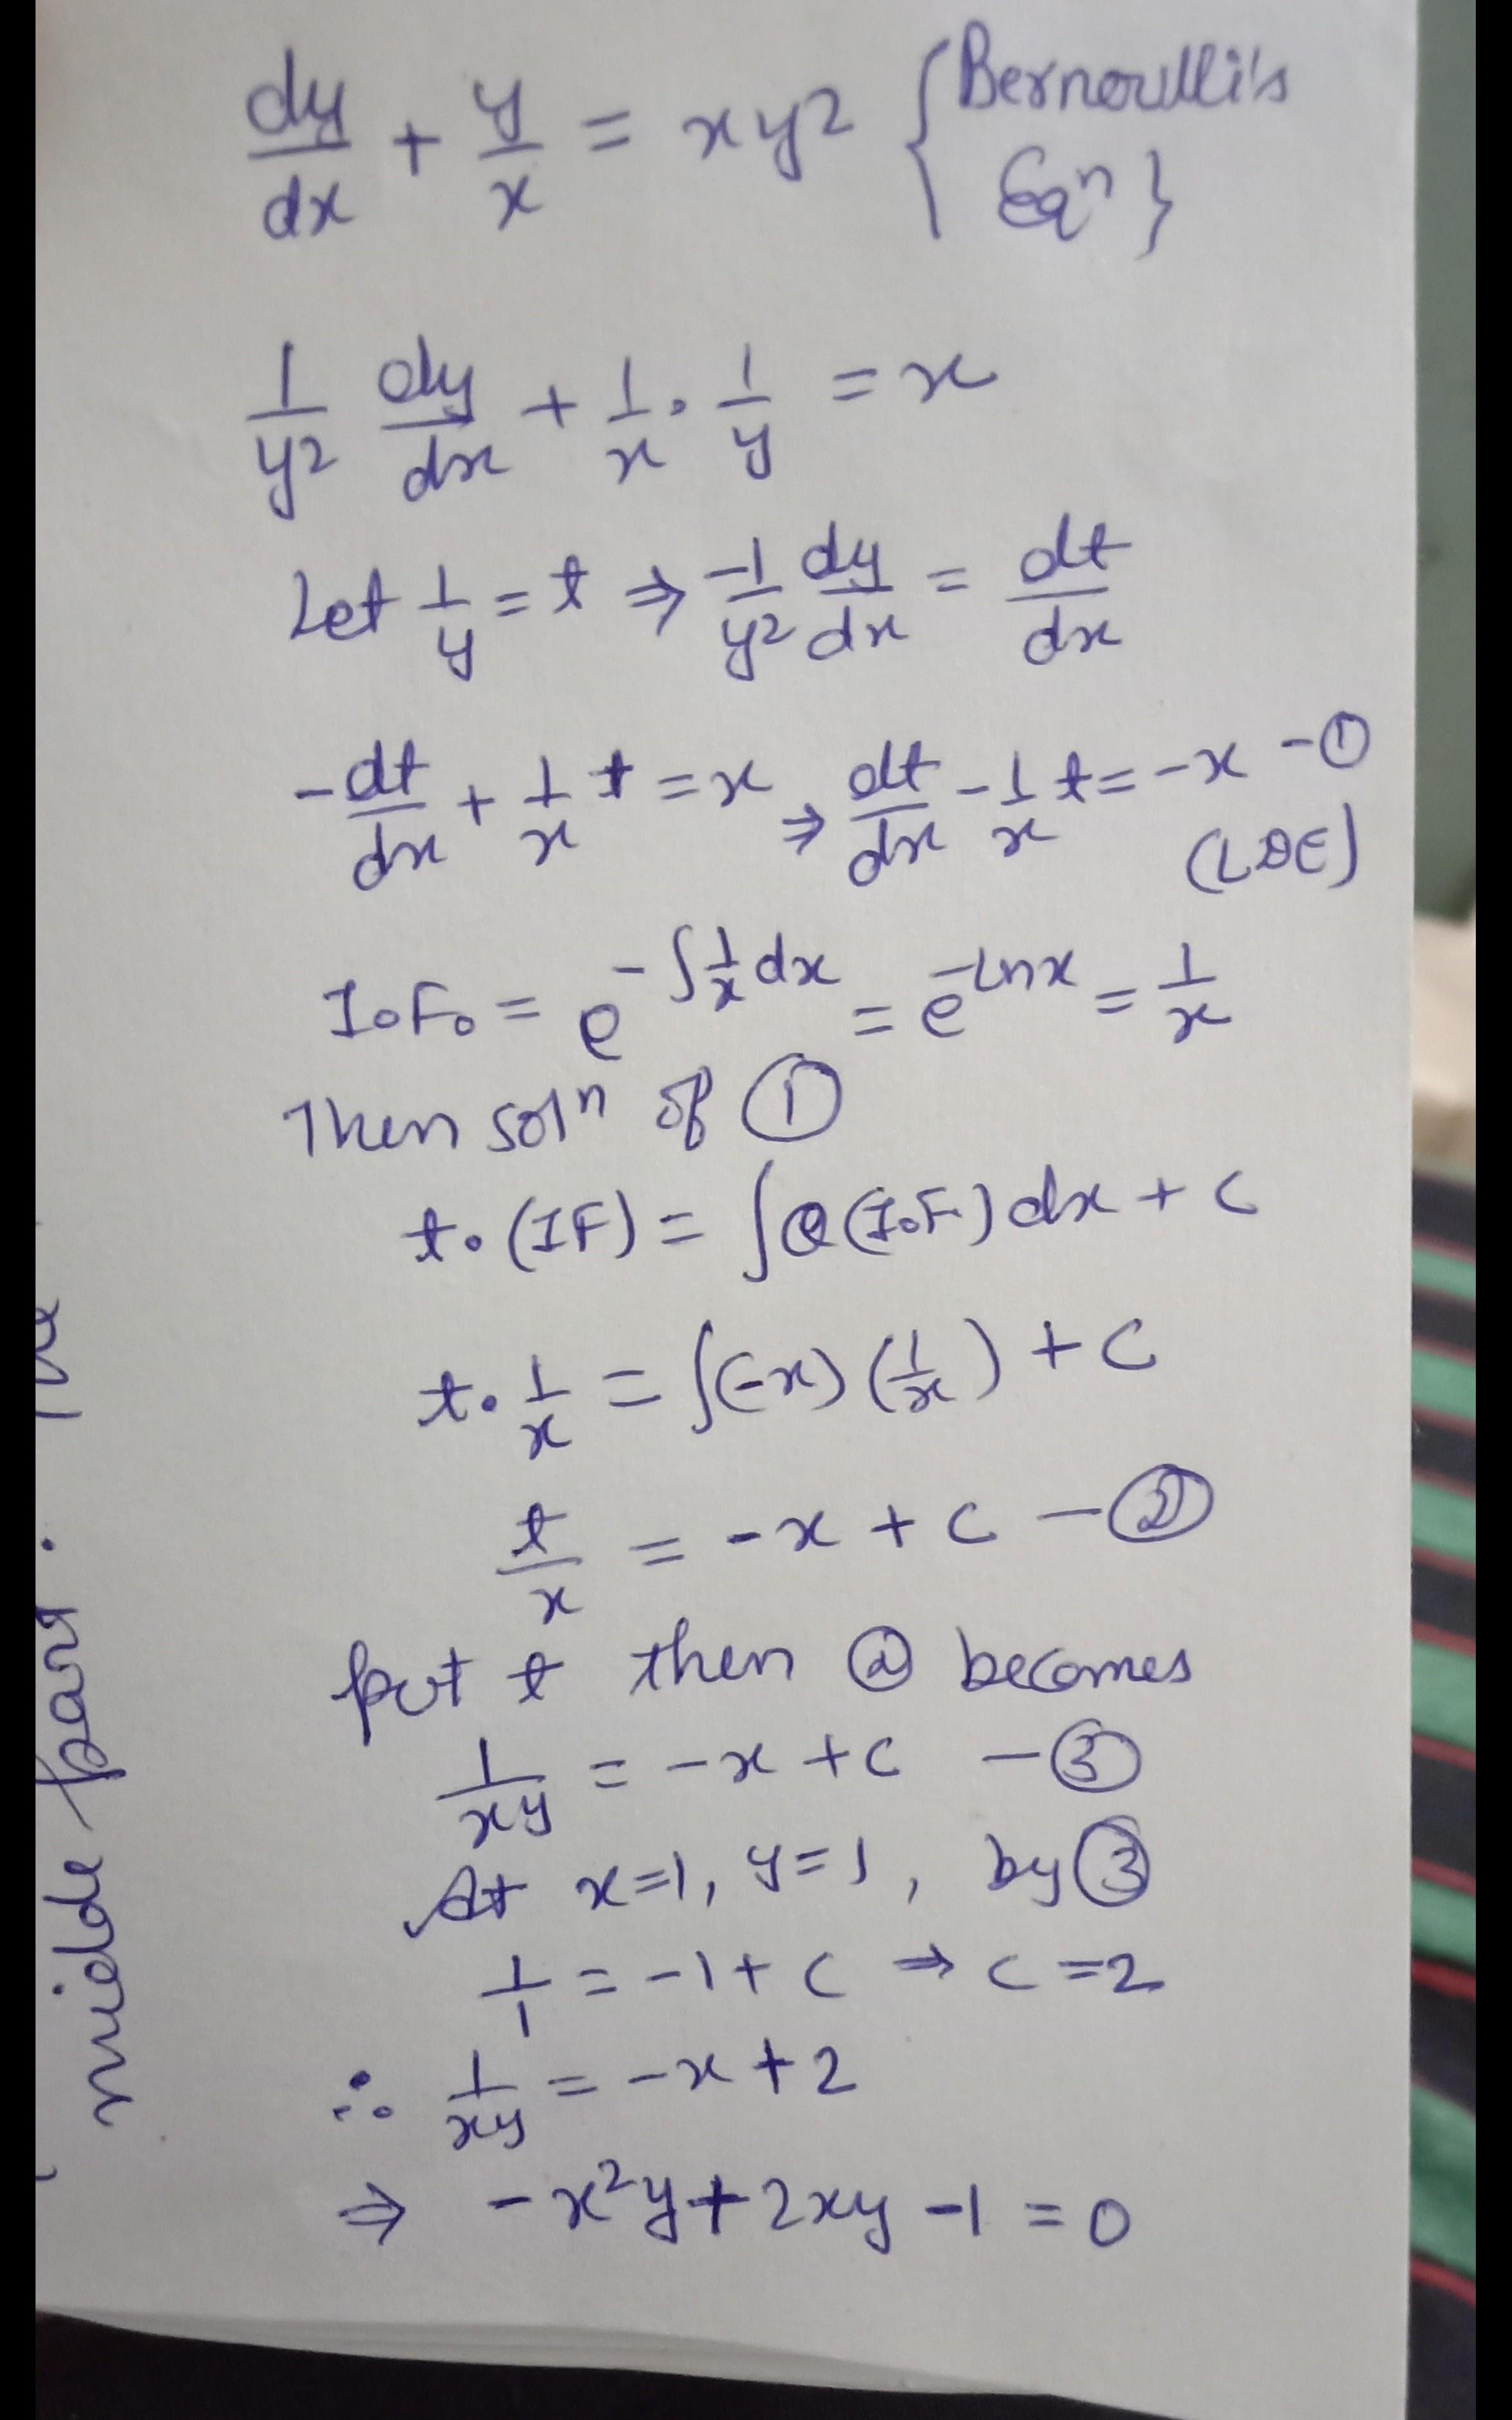 dy/dx + y/x = xy² {Bernoulli's Eqⁿ}
1/y² dy/dx + 1/x · 1/y = x
Let 1/y = t ⇒ -1/y² dy/dx = dt/dx
-dt/dx + 1/x t = x ⇒ dt/dx - 1/x t = -x - ① (LDE)
I.F. = e^(-∫ 1/x dx) = e^(-lnx) = 1/x
Then solⁿ of ①
t. (IF) = ∫Q(I.F.) dx + c
t. 1/x = ∫(-x) (1/x) + C
t/x = -x + c - ②
put t then ② becomes
1/xy = -x + c - ③
At x=1, y=1, by ③
1/1 = -1 + c ⇒ c = 2
∴ 1/xy = -x + 2
⇒ -x²y + 2xy - 1 = 0
midde part.